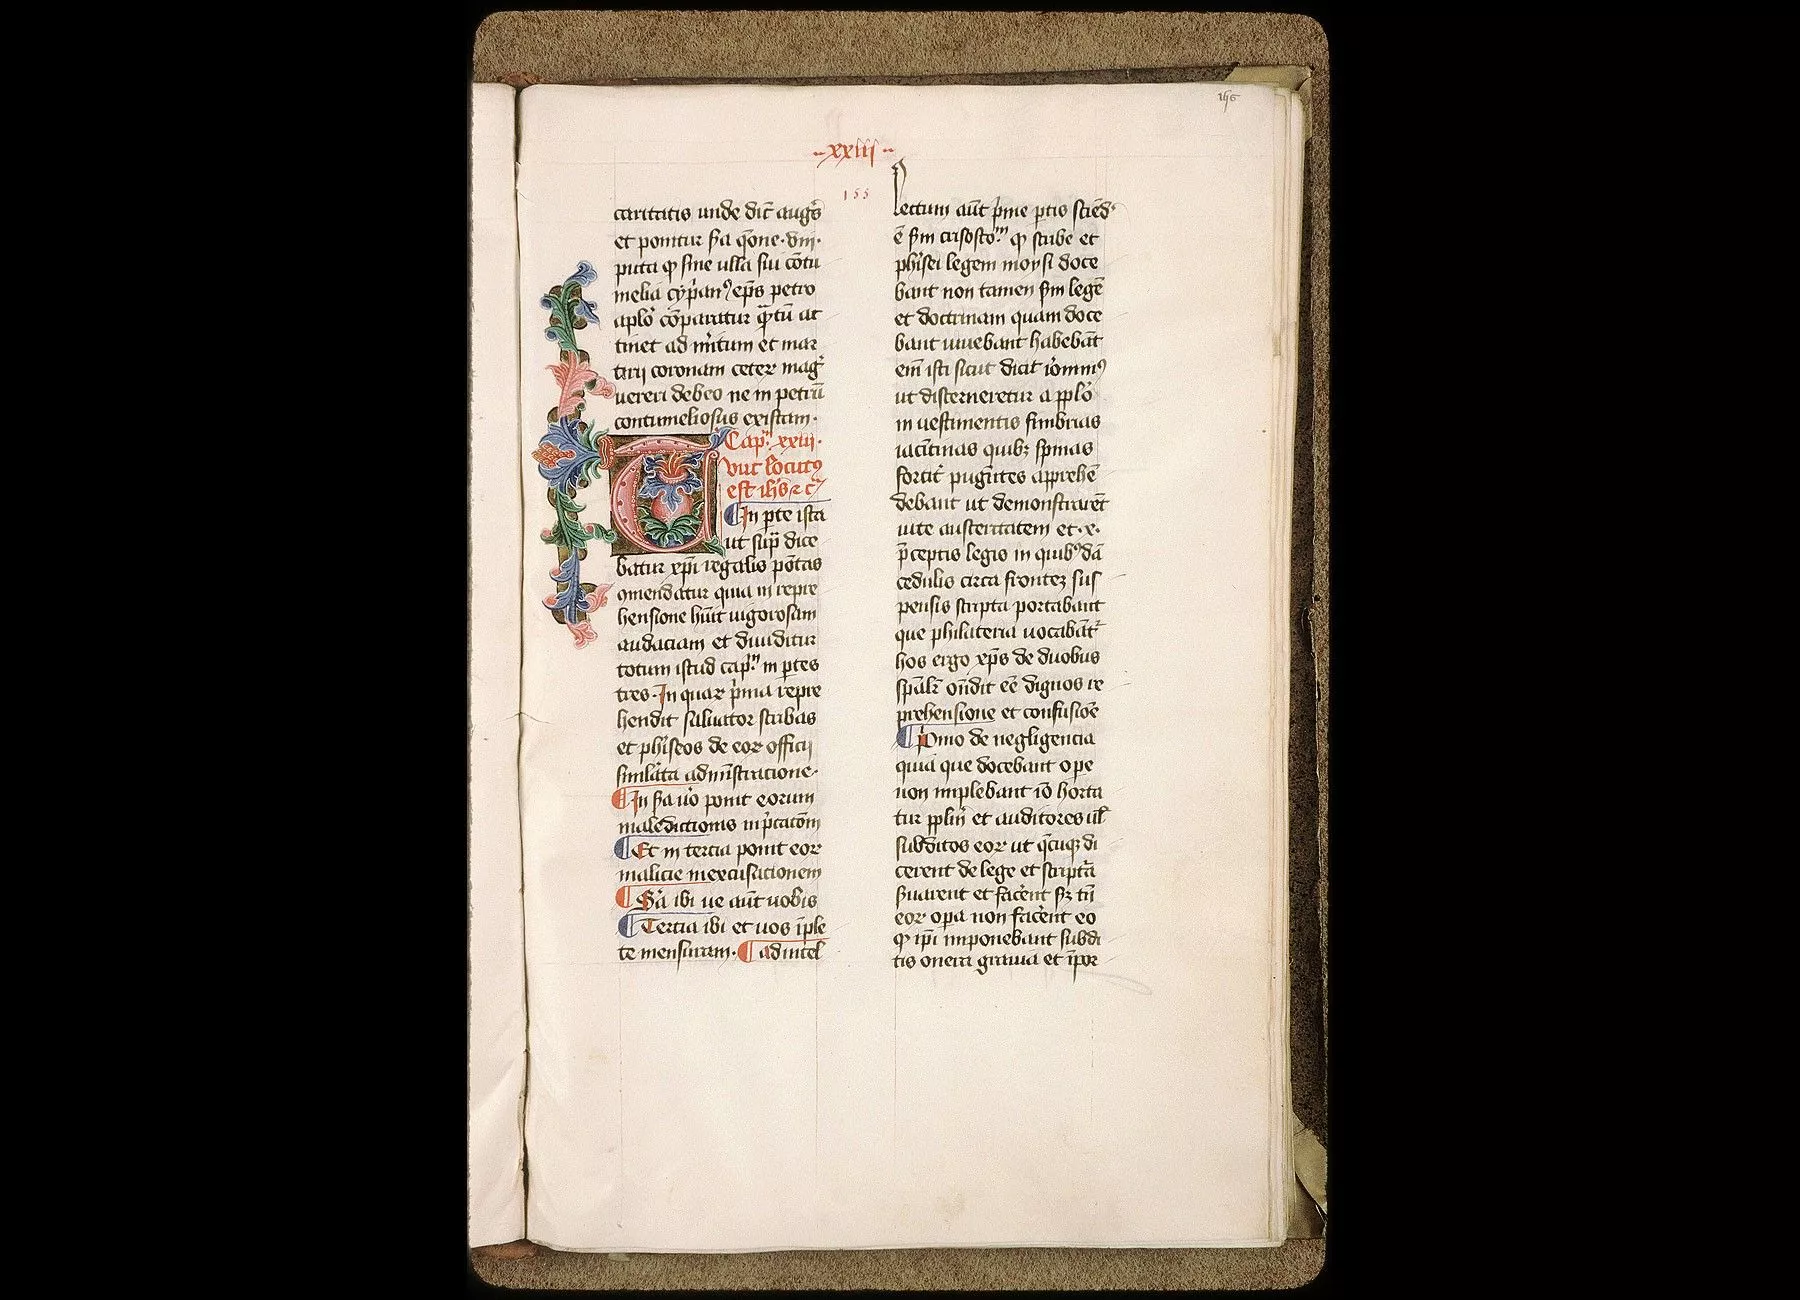 156
xxiii
155
caritatis unde dic̄ augꝰ
et ponitur ẜa q̄one viii
puta ꝙ sine ulla sui cōtu
melia cyp̄anꝰ ep̄s petro
apl̄o cōparatur q̄tū at
tinet ad m̄itum et mar
tirij coronam ceteꝝ maḡ
uereri debeo ne in petrū
contumeliosus existam
Cap̄m xxiii
Tūc locutꝰ
est ih̄s ⁊ c̄
In p̄te ista
ut sup̄ dice
batur xp̄i regalis po͞tas
ꝯmendatur quia in repre
hensione huīt uigorosam
audaciam et diuiditur
totum istud cap̄m in ptes
tres In quaꝝ p̄ma repre
hendit saluator scribas
et ph̄iseos de eoꝝ officij
simil̄ata adm̄istracione
In ẜa uo ponit eorum
maledictionis inp̄catōm
Et in tercia ponit eoꝝ
malicie inexcusacionem
Sā ibi ue aūt uobis
Tercia ibi et uos īple
te mensuram ad intel
lectum aūt p̄me ptis sciēd
ē ẜm crisosto᷒m ꝙ scribe et
ph̄isei legem moysi doce
bant non tamen ẜm legē
et doctrinam quam doce
bant uiuebant habebāt
em̄ isti sicut dicit iōnimꝰ
ut discerneretur a pplo
in uestimentis fimbrias
iacītinas quibꝫ spinas
fortit̄ pug̃ntes apprehē
debant ut demonstrarēt
uite austeritatem et x
p̄ceptis legis in quibꝰdā
cedulis circa frontes sus
pensis scripta portabant
que philateria uocabāt᷑
hos ergo xp̄s de duobus
sp̄alꝝ on̄dit eē dignos re
prehensione et confusiōe
Pmo de negligencia
quia que docebant ope
non implebant iō horta
tur ppl̄m et auditores ul̄
subditos eoꝝ ut q̄cūqꝫ di
cerent de lege et scriptā
ẜuarent et facēnt ẜꝫ tn̄
eoꝝ opa non facēnt eo
ꝙ ip̄i imponebant subdi
tis onera grauia et īpor